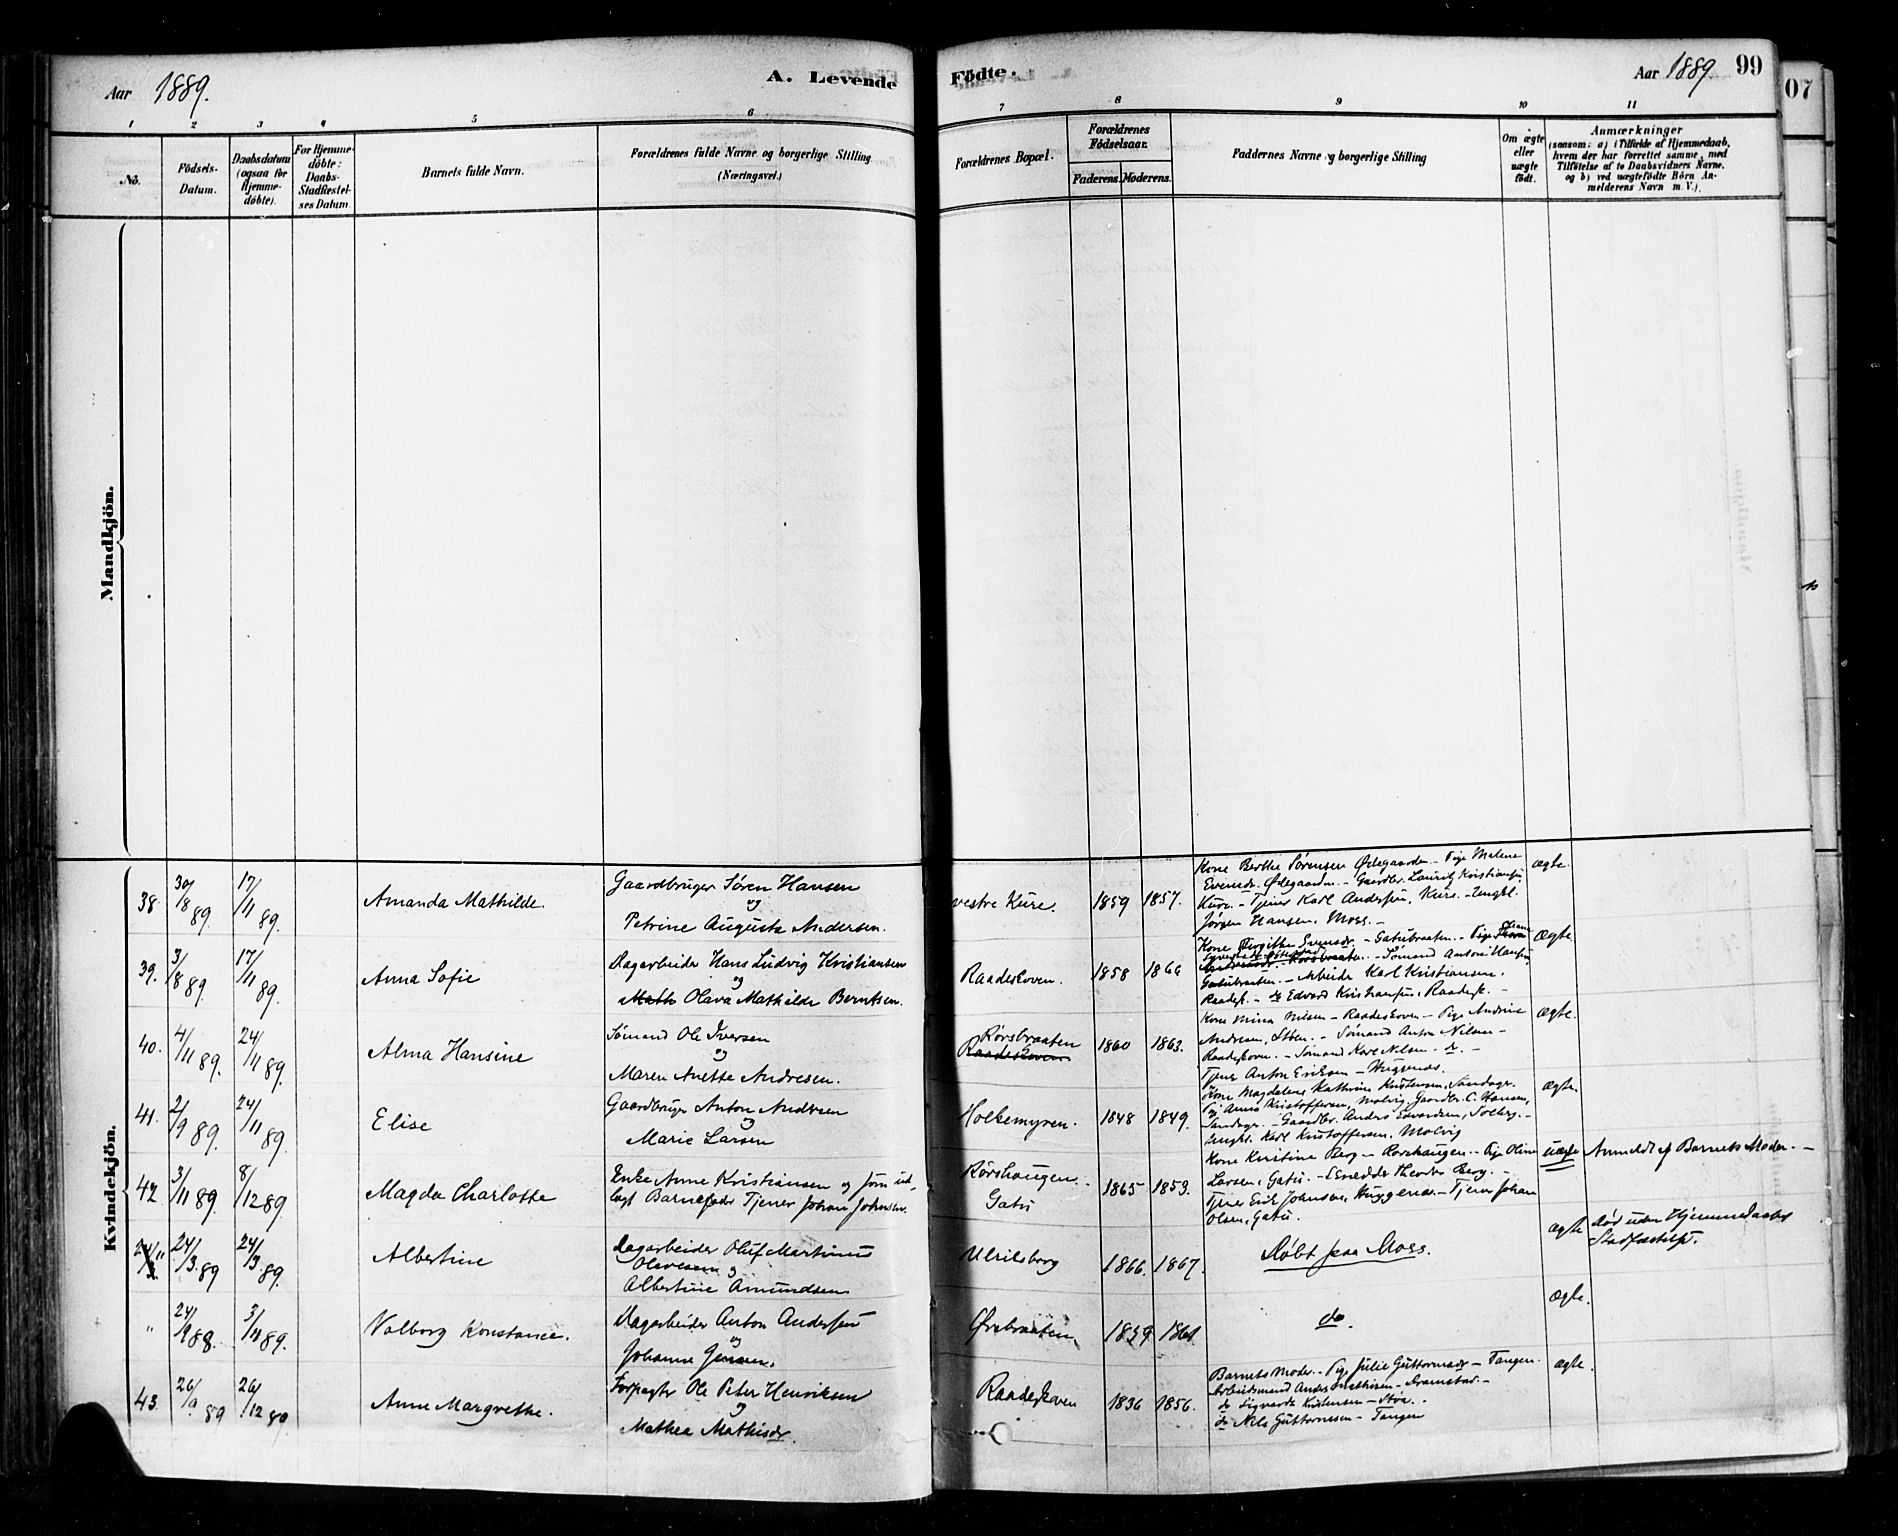 Aar 1889.
A. Levende
Födte.
Aar 1889. 99
07
1 2 3 4 5 6 7 8 9 10 11
No.
Födsels-
Datum.
Daabsdatum
(ogsaa for
Hjemme-
döbte).
For Hjemme-
döbte:
Daabs-
Stadfæstel-
ses Datum
Barnets fulde Navn.
Forældrenes fulde Navne og borgerlige Stilling
(Næringsvei.)
Forældrenes Bopæl.
Forældrenes
Födselsaar.
Faderens. Moderens.
Faddernes Navne og borgerlige Stilling
Om ægte
eller
uægte
födt.
Anmærkninger
(saasom: a) i Tilfælde af Hjemmedaab,
hvem der har forrettet samme, med
Tilföielse af to Daabsvidners Navne,
og b) ved uægtefödte Börn An-
melderens Navn m. V.).
Mandkjön.
Kvindekjön.
38. 30/8 89. 17/11 89. Amanda Mathilde.
Gaardbruger Søren Hansen
og
Petrine Augusta Andersen.
vestre Kure. 1859 1857.
Kone Berthe Sørensen Ødegaarden - Pige Malene
Evensdr. Ødegaarden. - Gaardbr. Lauritz Kristiansen
Kure. - Tjener Karl Andersen, Kure. - Ungkl.
Jørgen Hansen, Moss. -
ægte.
39. 3/8 89. 17/11 89. Anna Sofie
Dagarbeider Hans Ludvig Kristiansen
og
Math Olava Mathilde Berntsen.
Raadeskoven. 1858 1866
Kone Birgithe Evensdr. - Gatubraaten. - Pige
Rørsbraaten. - Sømand Anton Hansen,
Gatubraaten. - Arbeider Karl Kristiansen,
Raadesk. - do Edvard Kristiansen, Raadesk. -
Ægte.
40. 4/11 89. 24/11 89. Alma Hansine
Sømand Ole Iversen
og
Maren Anette Andresen.
Rørsbraaten
Raadeskoven 1860 1863.
Kone Mina Nilsen - Raadeskoven - Pige Andrine
Andresen, Sten. - Sømand Anton Nilsen -
Raadeskoven. - Sømand Karl Nilsen - do. -
Tjener Anton Eriksen - Huggenes.
Ægte.
41. 2/9 89. 24/11 89. Elise
Gaardbruger Anton Andresen
og
Marie Larsen
Holkemyren. 1848 1849.
Kone Magdalene Kathrine Kristensen, Sandager.
Pige Anna Kristoffersen, Molvig, Gaardbr. C. Hansen,
Sandager. - Gaardbr. Anders Edvardsen, Solberg. -
Ungkl. Karl Kristoffersen, Molvig
Ægte.
42. 3/11 89. 8/12 89. Magda Charlotte
Enke Anne Kristiansen og som ud-
lagt Barnefader Tjener Johan Johnsen.
Rørshaugen
Gatu 1865 1853.
Kone Kristine Berg - Rørshaugen. - Pige Oline
Larsen, Gatu. - Theodor Berg. -
Tjener Erik Johansen, Huggenes. - Tjener Johan
Olsen, Gatu.
uægte Anmeldt af Barnets Moder. -
24/3 89 24/3 89. Albertine
Dagarbeider Oluf Martinus
Olavesen og
Albertine Amundsen
Ulriksborg 1866. 1867.
Døbt paa Moss.
ægte
Død uden Hjemmedaabs
Stadfæstelse.
" 24/9 88. 3/11 89. Valborg Konstance.
Dagarbeider Anton Andersen
og
Johanne Jensen.
Ørebraaten 1859 1861.
do.
ægte.
43. 26/9 89 26/12 89. Anne Margrethe.
Forpagter Ole Peter Henriksen
og
Mathea Mathisdr.
Raadeskoven 1836 1856.
Barnets Moder. - Pige Julie Guttormsdr - Tangen.
Arbeidsmand Anders Mathisen - Dramstad. -
do Sigvardt Kristensen - Støa. -
do Nils Guttormsen - Tangen
ægte.